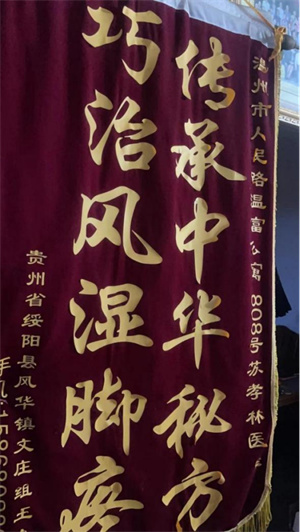 温州市人民路温富公寓808号苏孝林医
传承中华秘方
巧治风湿脚疼
贵州省绥阳县风华镇文庄组王
手机:1586800